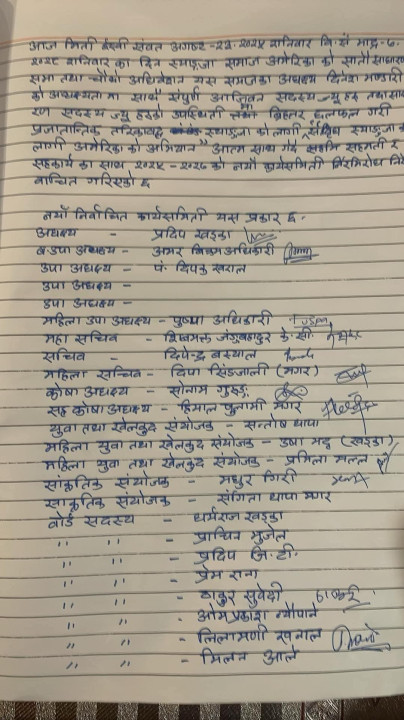 आज मिती ईस्वी संवत अगष्ट -२३- २०२५ शनिवार वि.सं भाद्र -७-
२०८२ शनिवार का दिन स्याङ्जा समाज अमेरिका को सातौ साधारण
सभा तथा चौथो अधिवेशन यस समाजका अध्यक्ष दिनेश भण्डारी
को अध्यक्षता मा साथै संपूर्ण आजिवन सदस्य ज्यू हरु तथा साधा
रण सदस्य ज्यू हरुको उपस्थिती मा बिहतर छलफल गरी
प्रजातान्त्रिक तरिकाबाट स्याङ्जा को लागी
लागी अमेरिका को अभियान" आत्म साथ गर्दै सहमती र
सहकार्य का साथ २०२५ - २०२७ को नयाँ कार्यसमिती निर्विरोध निर
वाचित गरिएको छ
नयाँ निर्वाचित कार्यसमिती यस प्रकार छ.
अध्यक्ष - प्रदिप खड्का
ब.उपा अध्यक्ष - अमर बिक्रम अधिकारी
उपा अध्यक्ष - पं. दिपक खराल
उपा अध्यक्ष -
उपा अध्यक्ष -
महिला उपा अध्यक्ष - पुष्पा अधिकारी
महा सचिव - जंगबहादुर के.सी.
सचिव - दिपेन्द्र बस्याल
महिला सचिव - दिपा सिंजाली (मगर)
कोषा अध्यक्ष - सोनाम गुरुङ्ग
सह कोषा अध्यक्ष - हिमाल पुलामी मगर
युवा तथा खेलकुद संयोजक - सन्तोष थापा
महिला युवा तथा खेलकुद संयोजक - उषा मद्व (खड्का)
महिला युवा तथा खेलकुद संयोजक - प्रमिला मल्ल
सांकृतिक संयोजक - मधुर गिरी
साकृतिक संयोजक - संगिता थापा मगर
वोर्ड सदस्य - धर्मराज खड्का
" " - प्राचिन मुजेल
" " - प्रदिप जि.टी.
" " - प्रेम राना
" " - ठाकुर सुवेदी
" " - ओम प्रकाश न्यौपाने
" " - लिलामणी खनाल
" " - मिलन आले